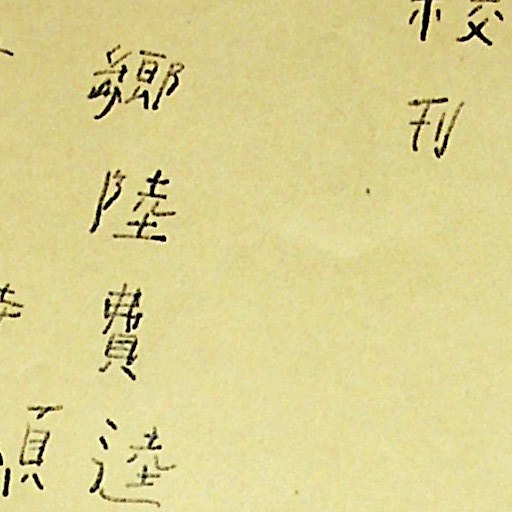 校刊
鄉陸費逵